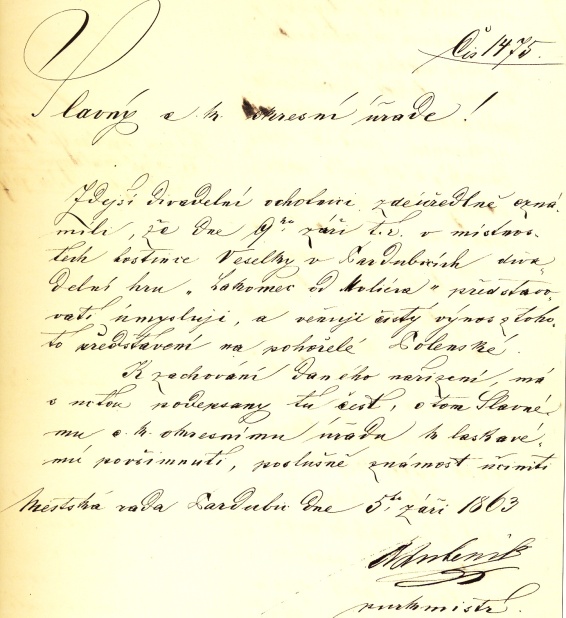 Čís 1475.
Slavný c. k. okresní úřade!
Zdejší divadelní ochotníci zdeúředlně ozná-
mili, že dne 9ho září t. r. v místnos-
tech hostince Veselky v Pardubicích diva-
delní hru „Lakomec od Moliera" představo-
vati úmyslují, a věnují čistý výnos z toho-
to představení na pohořelé Polenské.
K zachovaní daného nařízení, má
s úctou podepsaný tu čest, o tom Slavné-
mu c. k. okresnímu úřadu k laskavé-
mu povšimnutí, poslušně známost učiniti
Městská rada Pardubic dne 5ho září 1863
purkmistr.